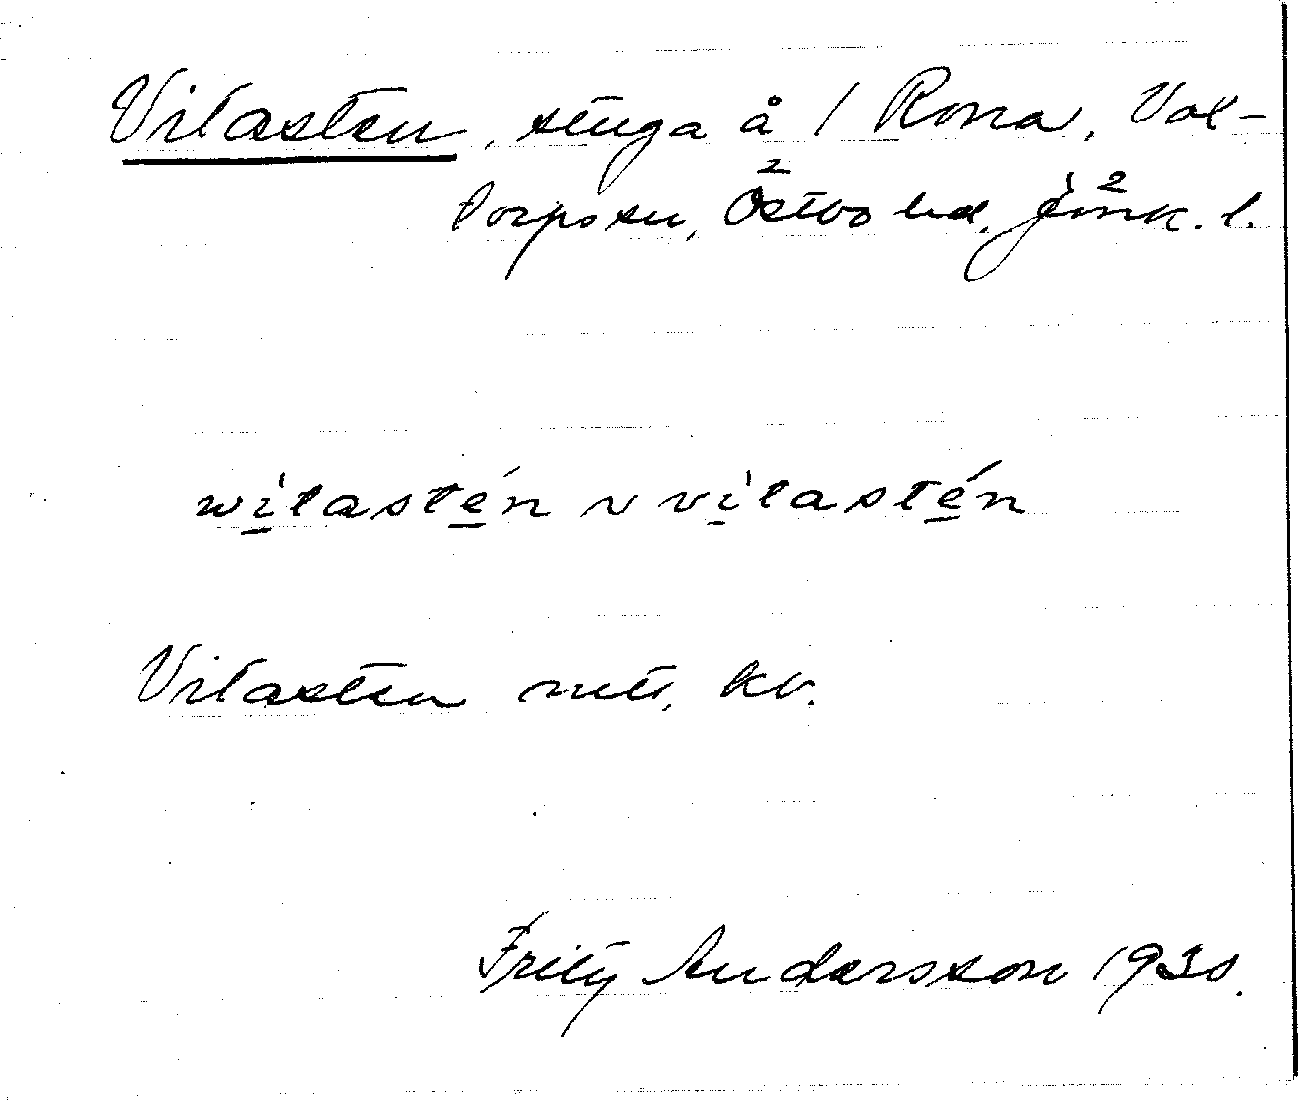 Vilasten, stuga å 1 Rona, Val-
torps sn, Östbo hd, Jönk. l.
wìlastén v vìlastén
Vilasten mtl, kv.
Fritz Andersson 1930.